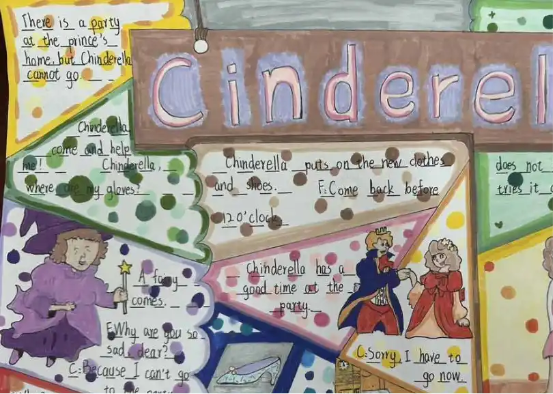 There is a party
at the prince's
home. but Chinderella
cannot go
Cinderel
Chinderella
come and help
me! Chinderella,
where are my gloves?
Chinderella puts on the new clothes
and shoes. F: Come back before
12 O'clock
does not
tries it
A fairy
comes.
F: Why are you so
sad, dear?
C: Because I can't go
to the party
Chinderella has a
good time at the
party.
C: Sorry, I have to
go now.